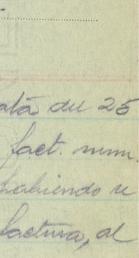 data du 25
fact. num.
habiendo u
factura, al